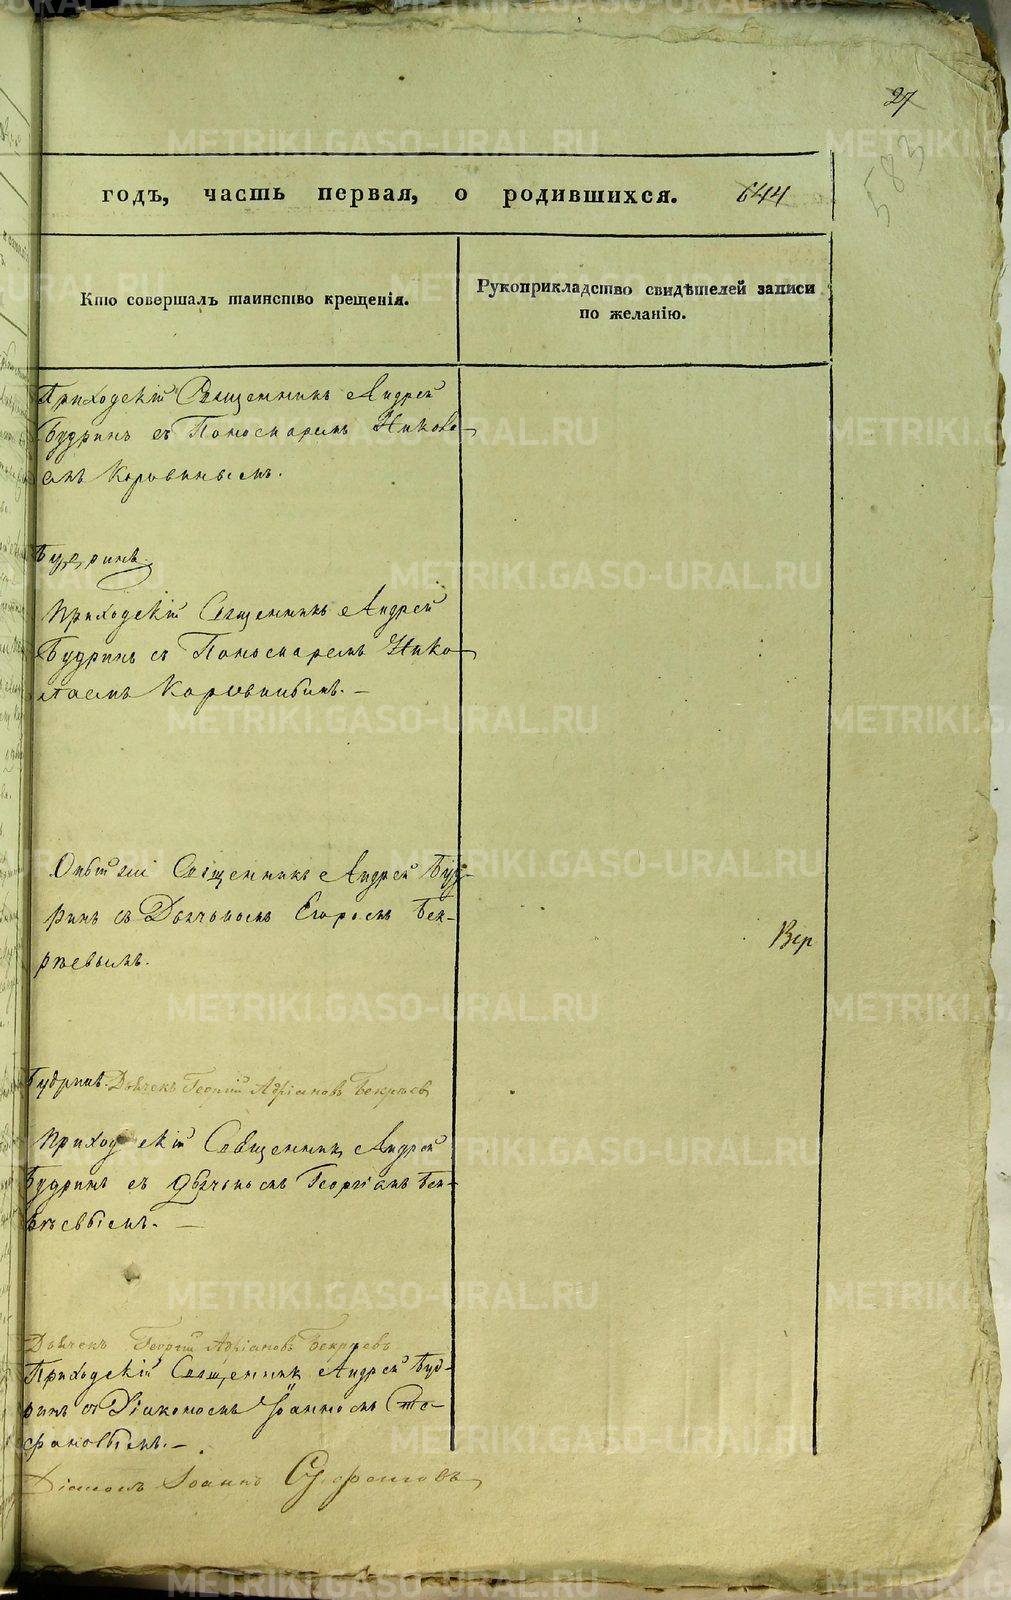 27
583
годъ, часть первая, о родившихся. 644
Кто совершалъ таинство крещенія.
Рукоприкладство свидѣтелей записи
по желанію.
Приходскій Священникъ Андрей
Будринъ съ Пономаремъ Никола-
емъ Коровинымъ.
Будринъ.
Приходскій Священникъ Андрей
Будринъ съ Пономаремъ Нико-
лаемъ Коровинымъ. —
Священникъ Андрей Буд-
ринъ съ Дьячькомъ Егоромъ Бек-
рѣевымъ.
Будринъ. Дьячекъ Георгій Адріановъ Бекрѣевъ
Приходскій Священникъ Андрей
Будринъ съ Дьячькомъ Георгіемъ Бек-
рѣевымъ. —
Дьячекъ Георгій Адріановъ Бекрѣевъ
Приходскій Священникъ Андрей Буд-
ринъ съ Діакономъ Іоанномъ Сте-
фановымъ. —
Діаконъ Іоаннъ Стефановъ
METRIKI.GASO-URAL.RU